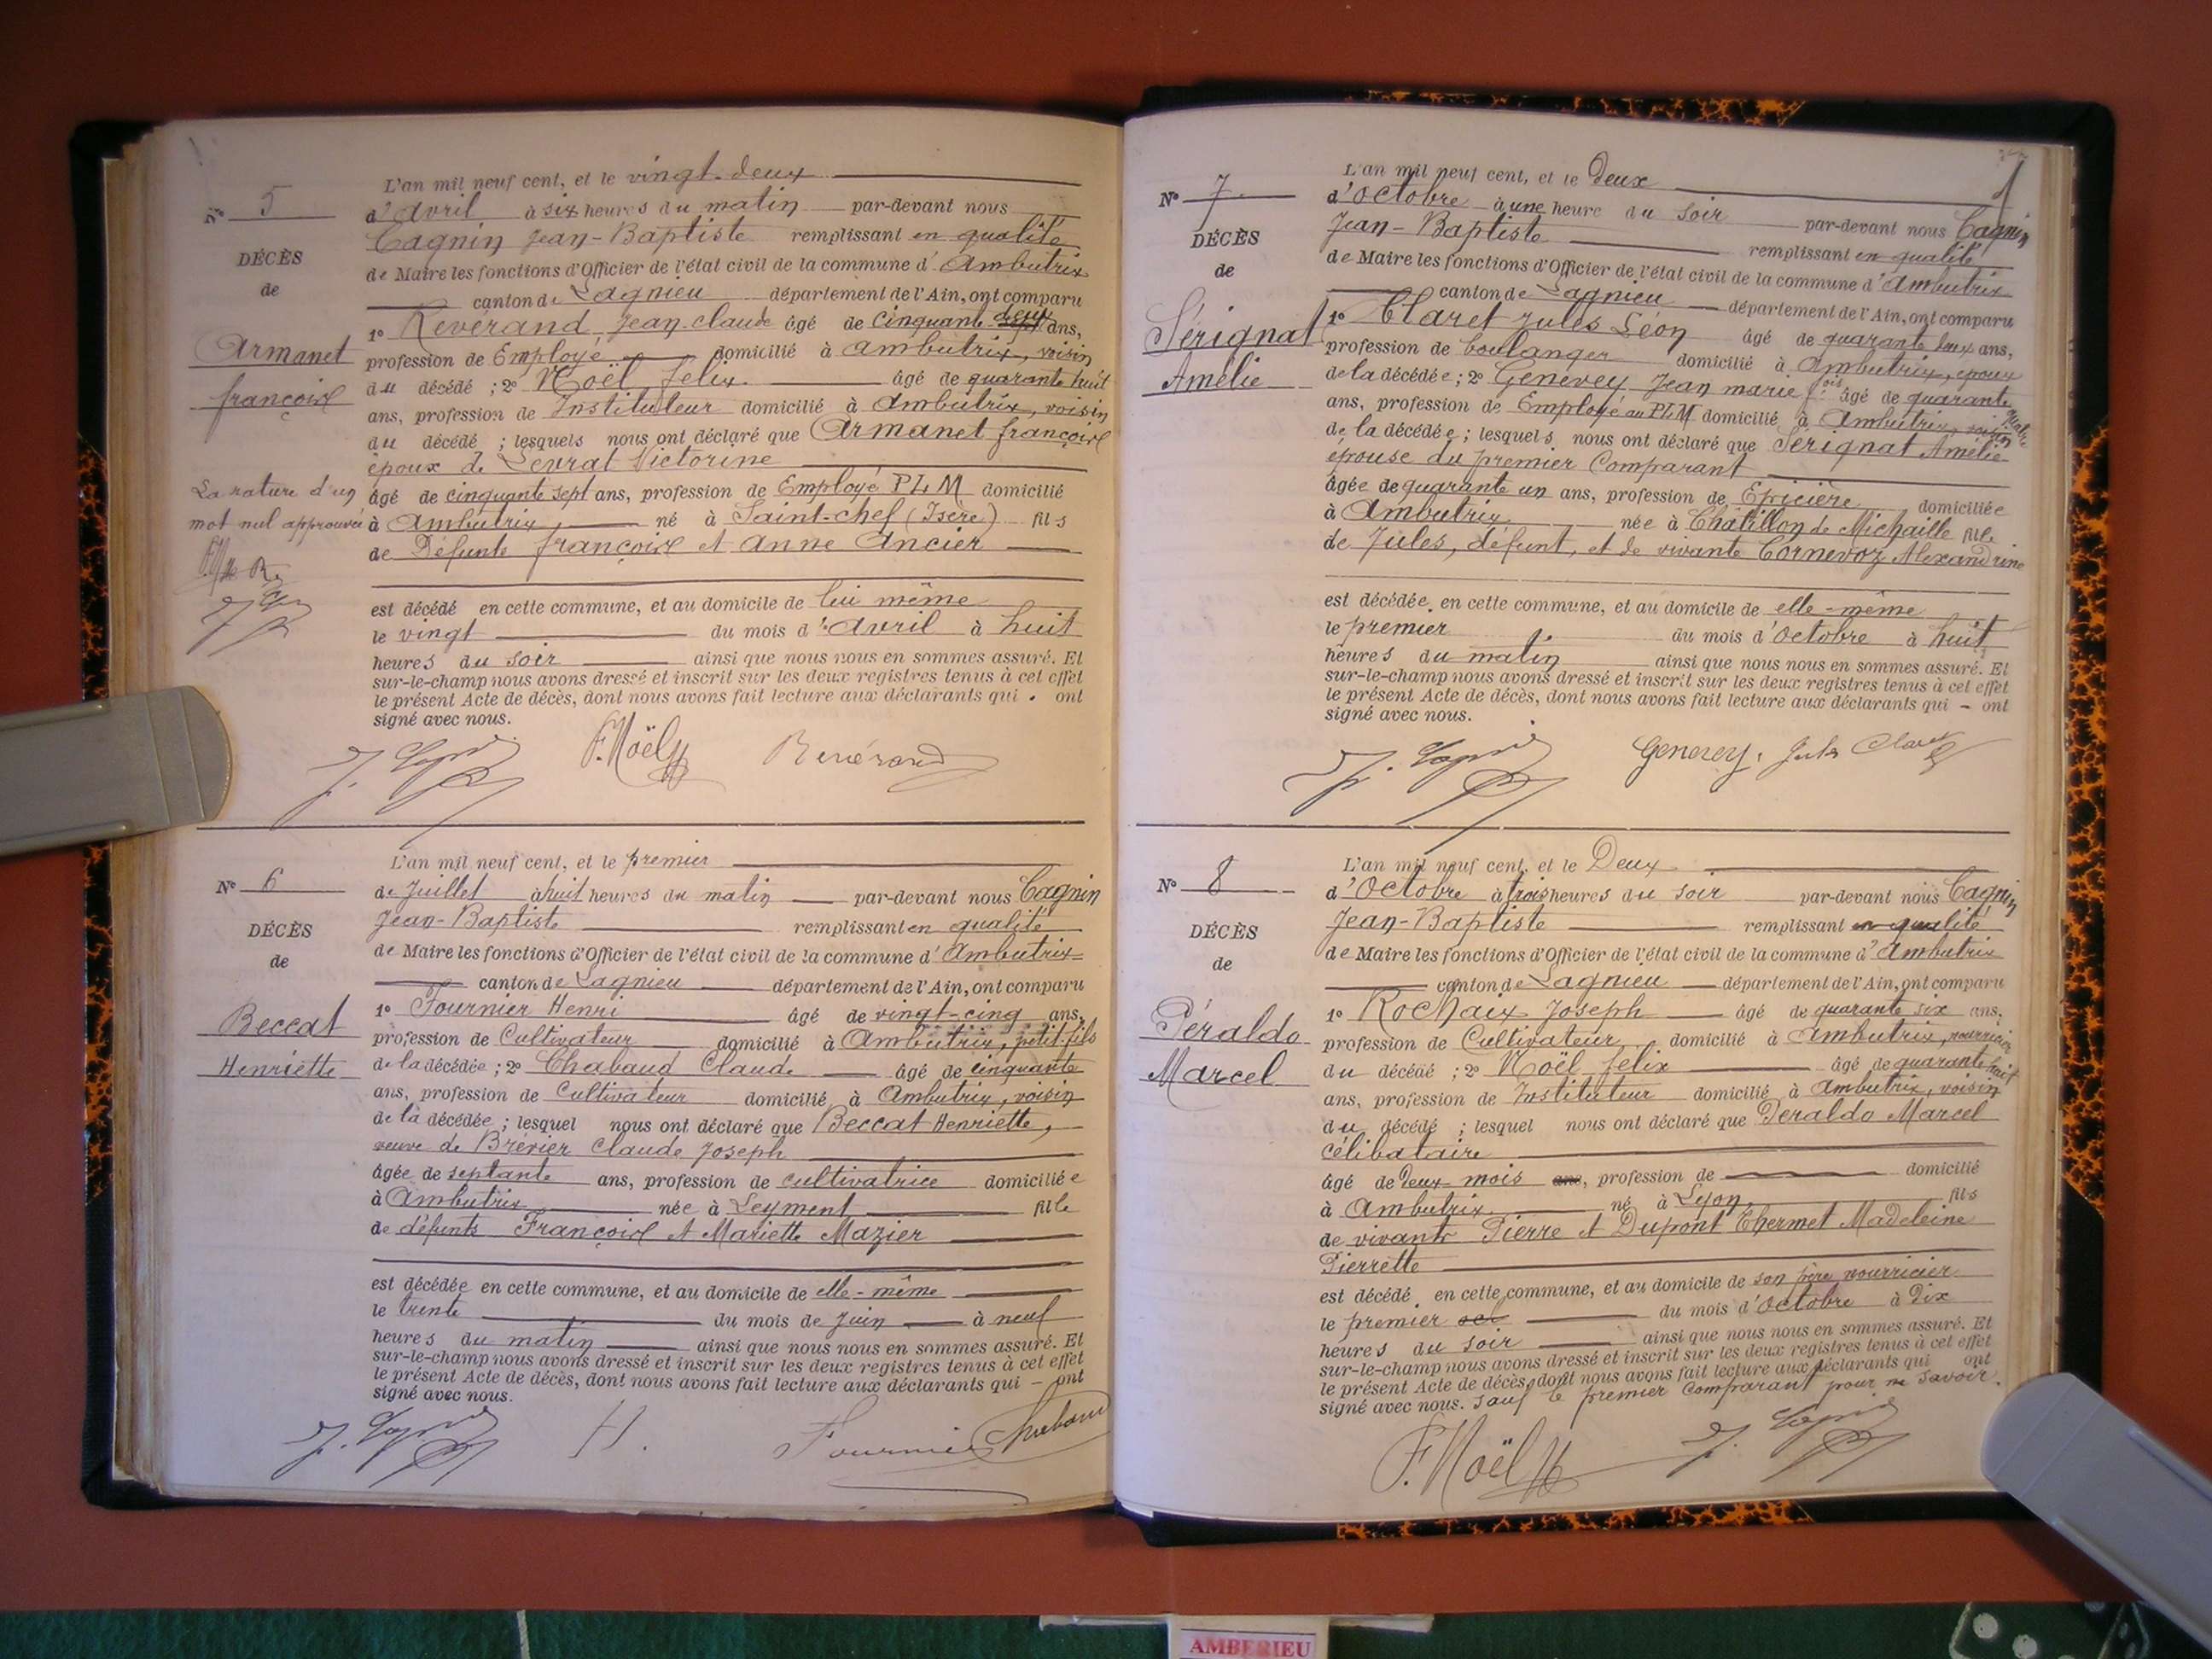 N° 5
DÉCÈS
de
Armanet
françois
La rature d'un
mot nul approuvée
L'an mil neuf cent, et le vingt-deux
d'Avril à six heures du matin par-devant nous
Cagnin Jean-Baptiste remplissant en qualité
de Maire les fonctions d'Officier de l'état civil de la commune d'Ambutrix
canton de Lagnieu département de l'Ain, ont comparu
1° Revérand Jean-Claude âgé de cinquante deux ans,
profession de Employé domicilié à Ambutrix, voisin
du décédé ; 2° Noël félix âgé de quarante huit
ans, profession de Instituteur domicilié à Ambutrix, voisin
du décédé ; lesquels nous ont déclaré que Armanet françois
époux de Levrat Victorine
âgé de cinquante sept ans, profession de Employé PLM domicilié
à Ambutrix, né à Saint-chef (Isère) fils
de Défunts françois et Anne Ancier
est décédé en cette commune, et au domicile de lui même
le vingt du mois d'Avril à huit
heures du soir ainsi que nous nous en sommes assuré. Et
sur-le-champ nous avons dressé et inscrit sur les deux registres tenus à cet effet
le présent Acte de décès, dont nous avons fait lecture aux déclarants qui ont
signé avec nous.
F. Noël Revérand
N° 6
DÉCÈS
de
Beccat
Henriette
L'an mil neuf cent, et le premier
de Juillet à huit heures du matin par-devant nous Cagnin
Jean-Baptiste remplissant en qualité
de Maire les fonctions d'Officier de l'état civil de la commune d'Ambutrix
canton de Lagnieu département de l'Ain, ont comparu
1° Fournier Henri âgé de vingt-cinq ans,
profession de Cultivateur domicilié à Ambutrix, petit-fils
de la décédée ; 2° Chabaud Claude âgé de cinquante
ans, profession de Cultivateur domicilié à Ambutrix, voisin
de la décédée ; lesquel nous ont déclaré que Beccat Henriette,
veuve de Brévier Claude Joseph
âgée de septante ans, profession de cultivatrice domiciliée
à Ambutrix née à Leyment fille
de défunts François et Mariette Mazier
est décédée en cette commune, et au domicile de elle-même
le trente du mois de Juin à neuf
heures du matin ainsi que nous nous en sommes assuré. Et
sur-le-champ nous avons dressé et inscrit sur les deux registres tenus à cet effet
le présent Acte de décès, dont nous avons fait lecture aux déclarants qui - ont
signé avec nous.
H. Fournier Chabaud
N° 7
DÉCÈS
de
Sérignat
Amélie
L'an mil neuf cent, et le Deux
d'Octobre à une heure du soir par-devant nous Cagnin
Jean-Baptiste remplissant en qualité
de Maire les fonctions d'Officier de l'état civil de la commune d'Ambutrix
canton de Lagnieu département de l'Ain, ont comparu
1° Claret Jules Léon âgé de quarante deux ans,
profession de boulanger domicilié à Ambutrix, époux
de la décédée ; 2° Genevey Jean marie fois âgé de quarante quatre
ans, profession de Employé au PLM domicilié à Ambutrix, voisin
de la décédée ; lesquels nous ont déclaré que Sérignat Amélie
épouse du premier Comparant
âgée de quarante un ans, profession de Epicière domiciliée
à Ambutrix née à Châtillon de Michaille fille
de Jules, défunt, et de vivante Cornevoz Alexandrine
est décédée en cette commune, et au domicile de elle-même
le premier du mois d'Octobre à huit
heures du matin ainsi que nous nous en sommes assuré. Et
sur-le-champ nous avons dressé et inscrit sur les deux registres tenus à cet effet
le présent Acte de décès, dont nous avons fait lecture aux déclarants qui - ont
signé avec nous.
Genevey. Jules Claret
N° 8
DÉCÈS
de
Péraldo
Marcel
L'an mil neuf cent, et le Deux
d'Octobre à trois heures du soir par-devant nous Cagnin
Jean-Baptiste remplissant en qualité
de Maire les fonctions d'Officier de l'état civil de la commune d'Ambutrix
canton de Lagnieu département de l'Ain, ont comparu
1° Rochaix Joseph âgé de quarante six ans,
profession de Cultivateur domicilié à Ambutrix, nourricier
du décédé ; 2° Noël félix âgé de quarante huit
ans, profession de Instituteur domicilié à Ambutrix, voisin
du décédé ; lesquel nous ont déclaré que Péraldo Marcel
célibataire
âgé de Deux mois ans, profession de domicilié
à Ambutrix né à Lyon, fils
de vivants Pierre et Dupont Thermet Madeleine
Pierrette
est décédé en cette commune, et au domicile de son père nourricier
le premier oct du mois d'Octobre à Dix
heures du soir ainsi que nous nous en sommes assuré. Et
sur-le-champ nous avons dressé et inscrit sur les deux registres tenus à cet effet
le présent Acte de décès, dont nous avons fait lecture aux déclarants qui ont
signé avec nous. sauf le premier Comparant pour ne savoir.
F. Noël
AMBERIEU